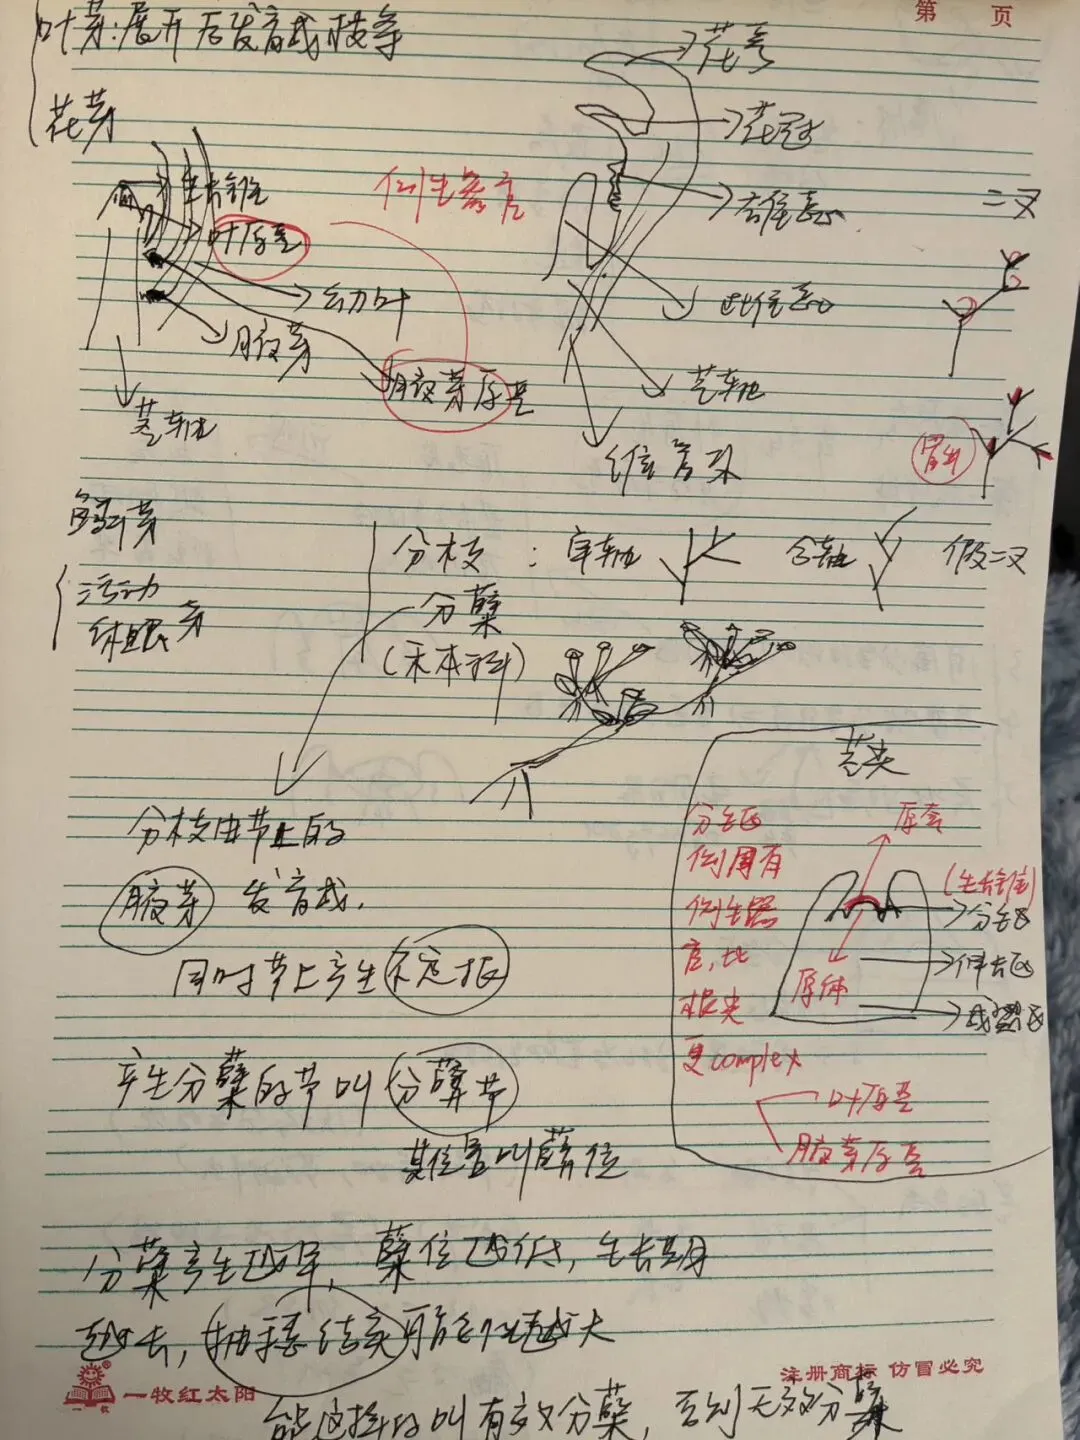 第 页
叶芽:展开后发育成枝条
花芽
花萼
花冠
生长锥
侧生器官
叶原基
雄蕊
二叉
幼叶
雌蕊
腋芽
腋芽原基
茎轴
茎轴
维管束
鳞芽
活动
休眠芽
分枝:单轴 合轴 假二叉
分蘖
(禾本科)
茎尖
分枝由节上的
腋芽发育成.
同时节上产生不定根
产生分蘖的节叫分蘖节
其位置叫蘖位
分生区
侧周有
侧生器
官,比
根尖
更complex
原套
(生长锥)
分生区
伸长区
成熟区
原体
叶原基
腋芽原基
分蘖产生越早,蘖位越低,生长期
越长,抽穗结实可能性越大
能这样的叫有效分蘖,否则无效分蘖
一牧红太阳
一牧
注册商标 仿冒必究